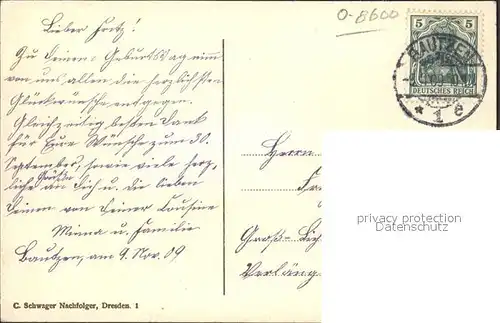 O-8600
Lieber Fritz!
Zu Deinem Geburtstag nimm
von uns allen die herzlichsten
Glückwünsche entgegen.
Gleichzeitig besten Dank
für Eure Wünsche zum 30.
September, sowie viele herz-
liche Grüße an Dich u. die lieben
Deinen von Deiner Cousine
Minna u. Familie
Bautzen, am 9. Nov. 09
C. Schwager Nachfolger, Dresden. 1
5 5
DEUTSCHES REICH
BAUTZEN
* 1 e
Herrn
Groß-Lich
Verläng
privacy protection
Datenschutz